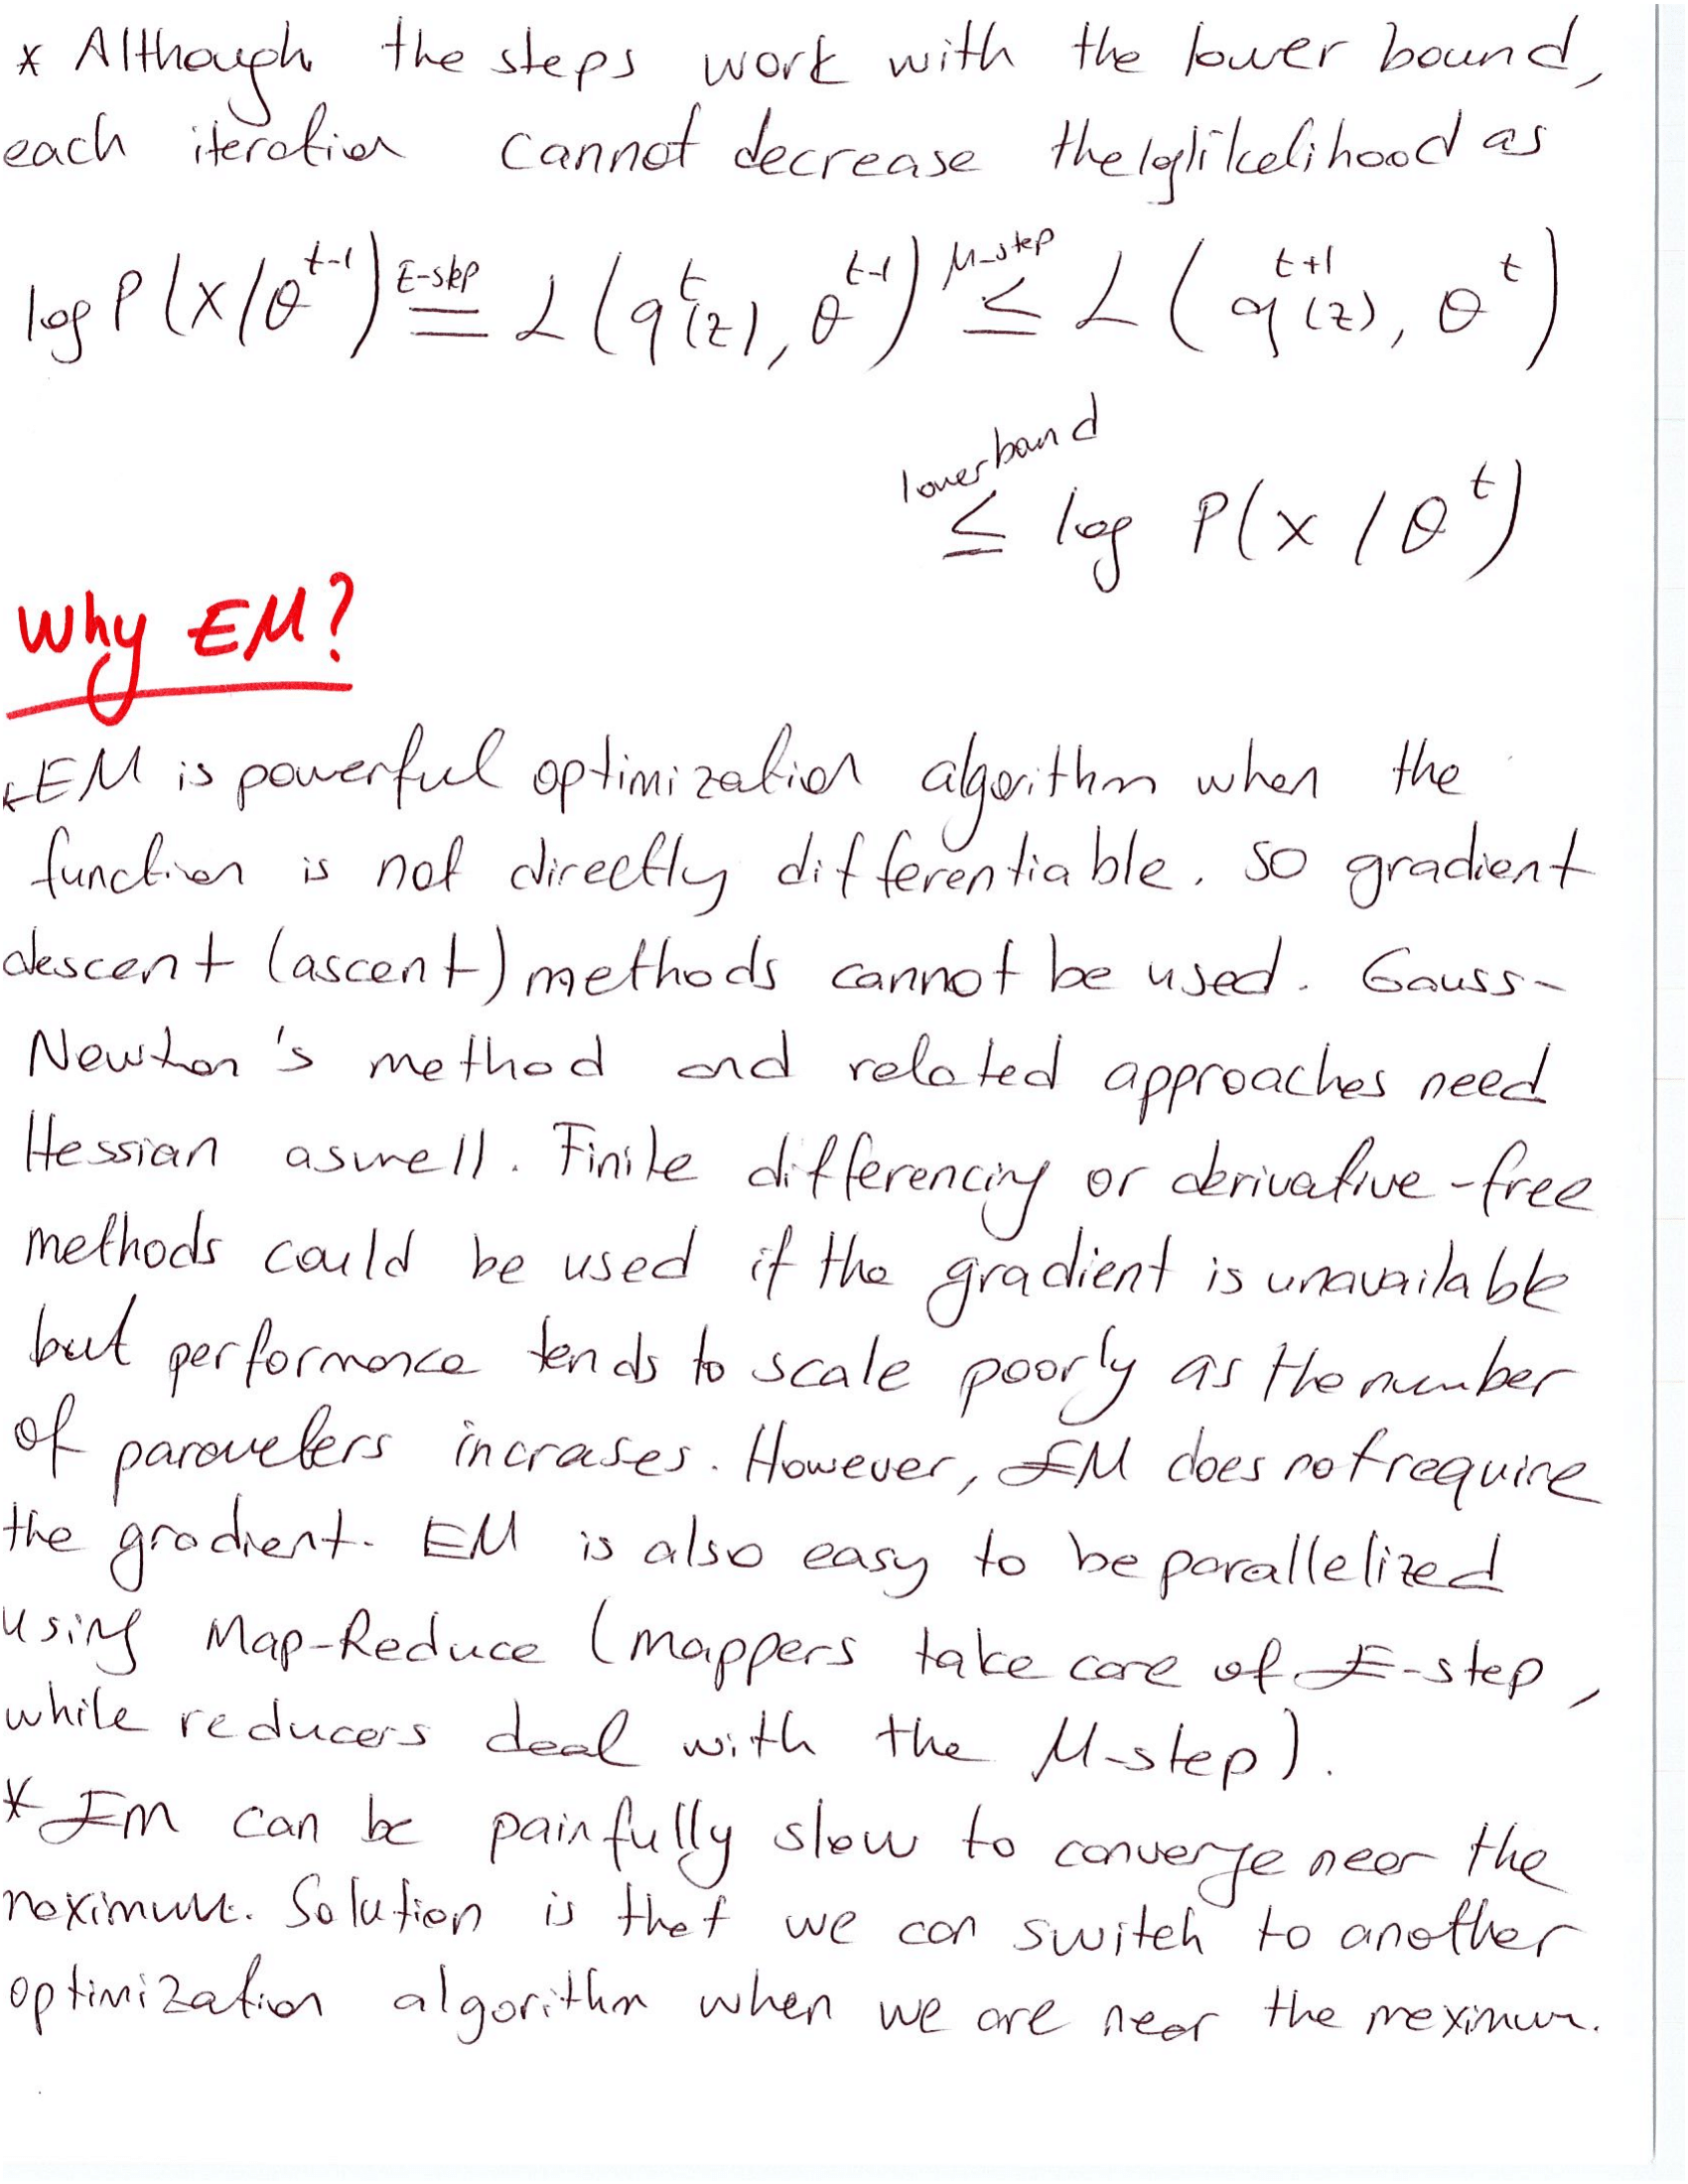 * Although the steps work with the lower bound,
each iteration cannot decrease the loglikelihood as
log P(x/θ^{t-1}) E-step = L(q^t(z), θ^{t-1}) M-step ≤ L(q^{t+1}(z), θ^t)
lower bound ≤ log P(x/θ^t)
Why EM?
* EM is powerful optimization algorithm when the
function is not directly differentiable. so gradient
descent (ascent) methods cannot be used. Gauss-
Newton's method and related approaches need
Hessian aswell. Finite differencing or derivative-free
methods could be used if the gradient is unavailable
but performance tends to scale poorly as the number
of parameters incrases. However, EM does not require
the gradient. EM is also easy to be parallelized
using Map-Reduce (mappers take care of E-step,
while reducers deal with the M-step).
* EM can be painfully slow to converge near the
maximum. Solution is that we can switch to another
optimization algorithm when we are near the maximum.